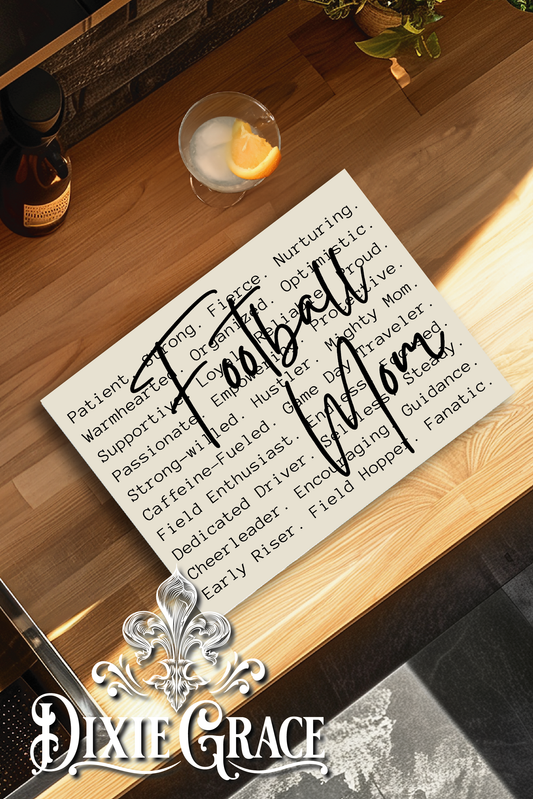 Patient. Strong. Fierce. Nurturing.
Warmhearted. Organized. Optimistic.
Supportive. Loyal. Reliable. Proud.
Passionate. Empowering. Protective.
Strong-willed. Hustler. Mighty Mom.
Caffeine-Fueled. Game Day Traveler.
Field Enthusiast. Endless
Dedicated Driver. Selfless. Steady.
Cheerleader. Encouraging Guidance.
Early Riser. Field Hopper. Fanatic.
Football
Mom
DIXIE GRACE